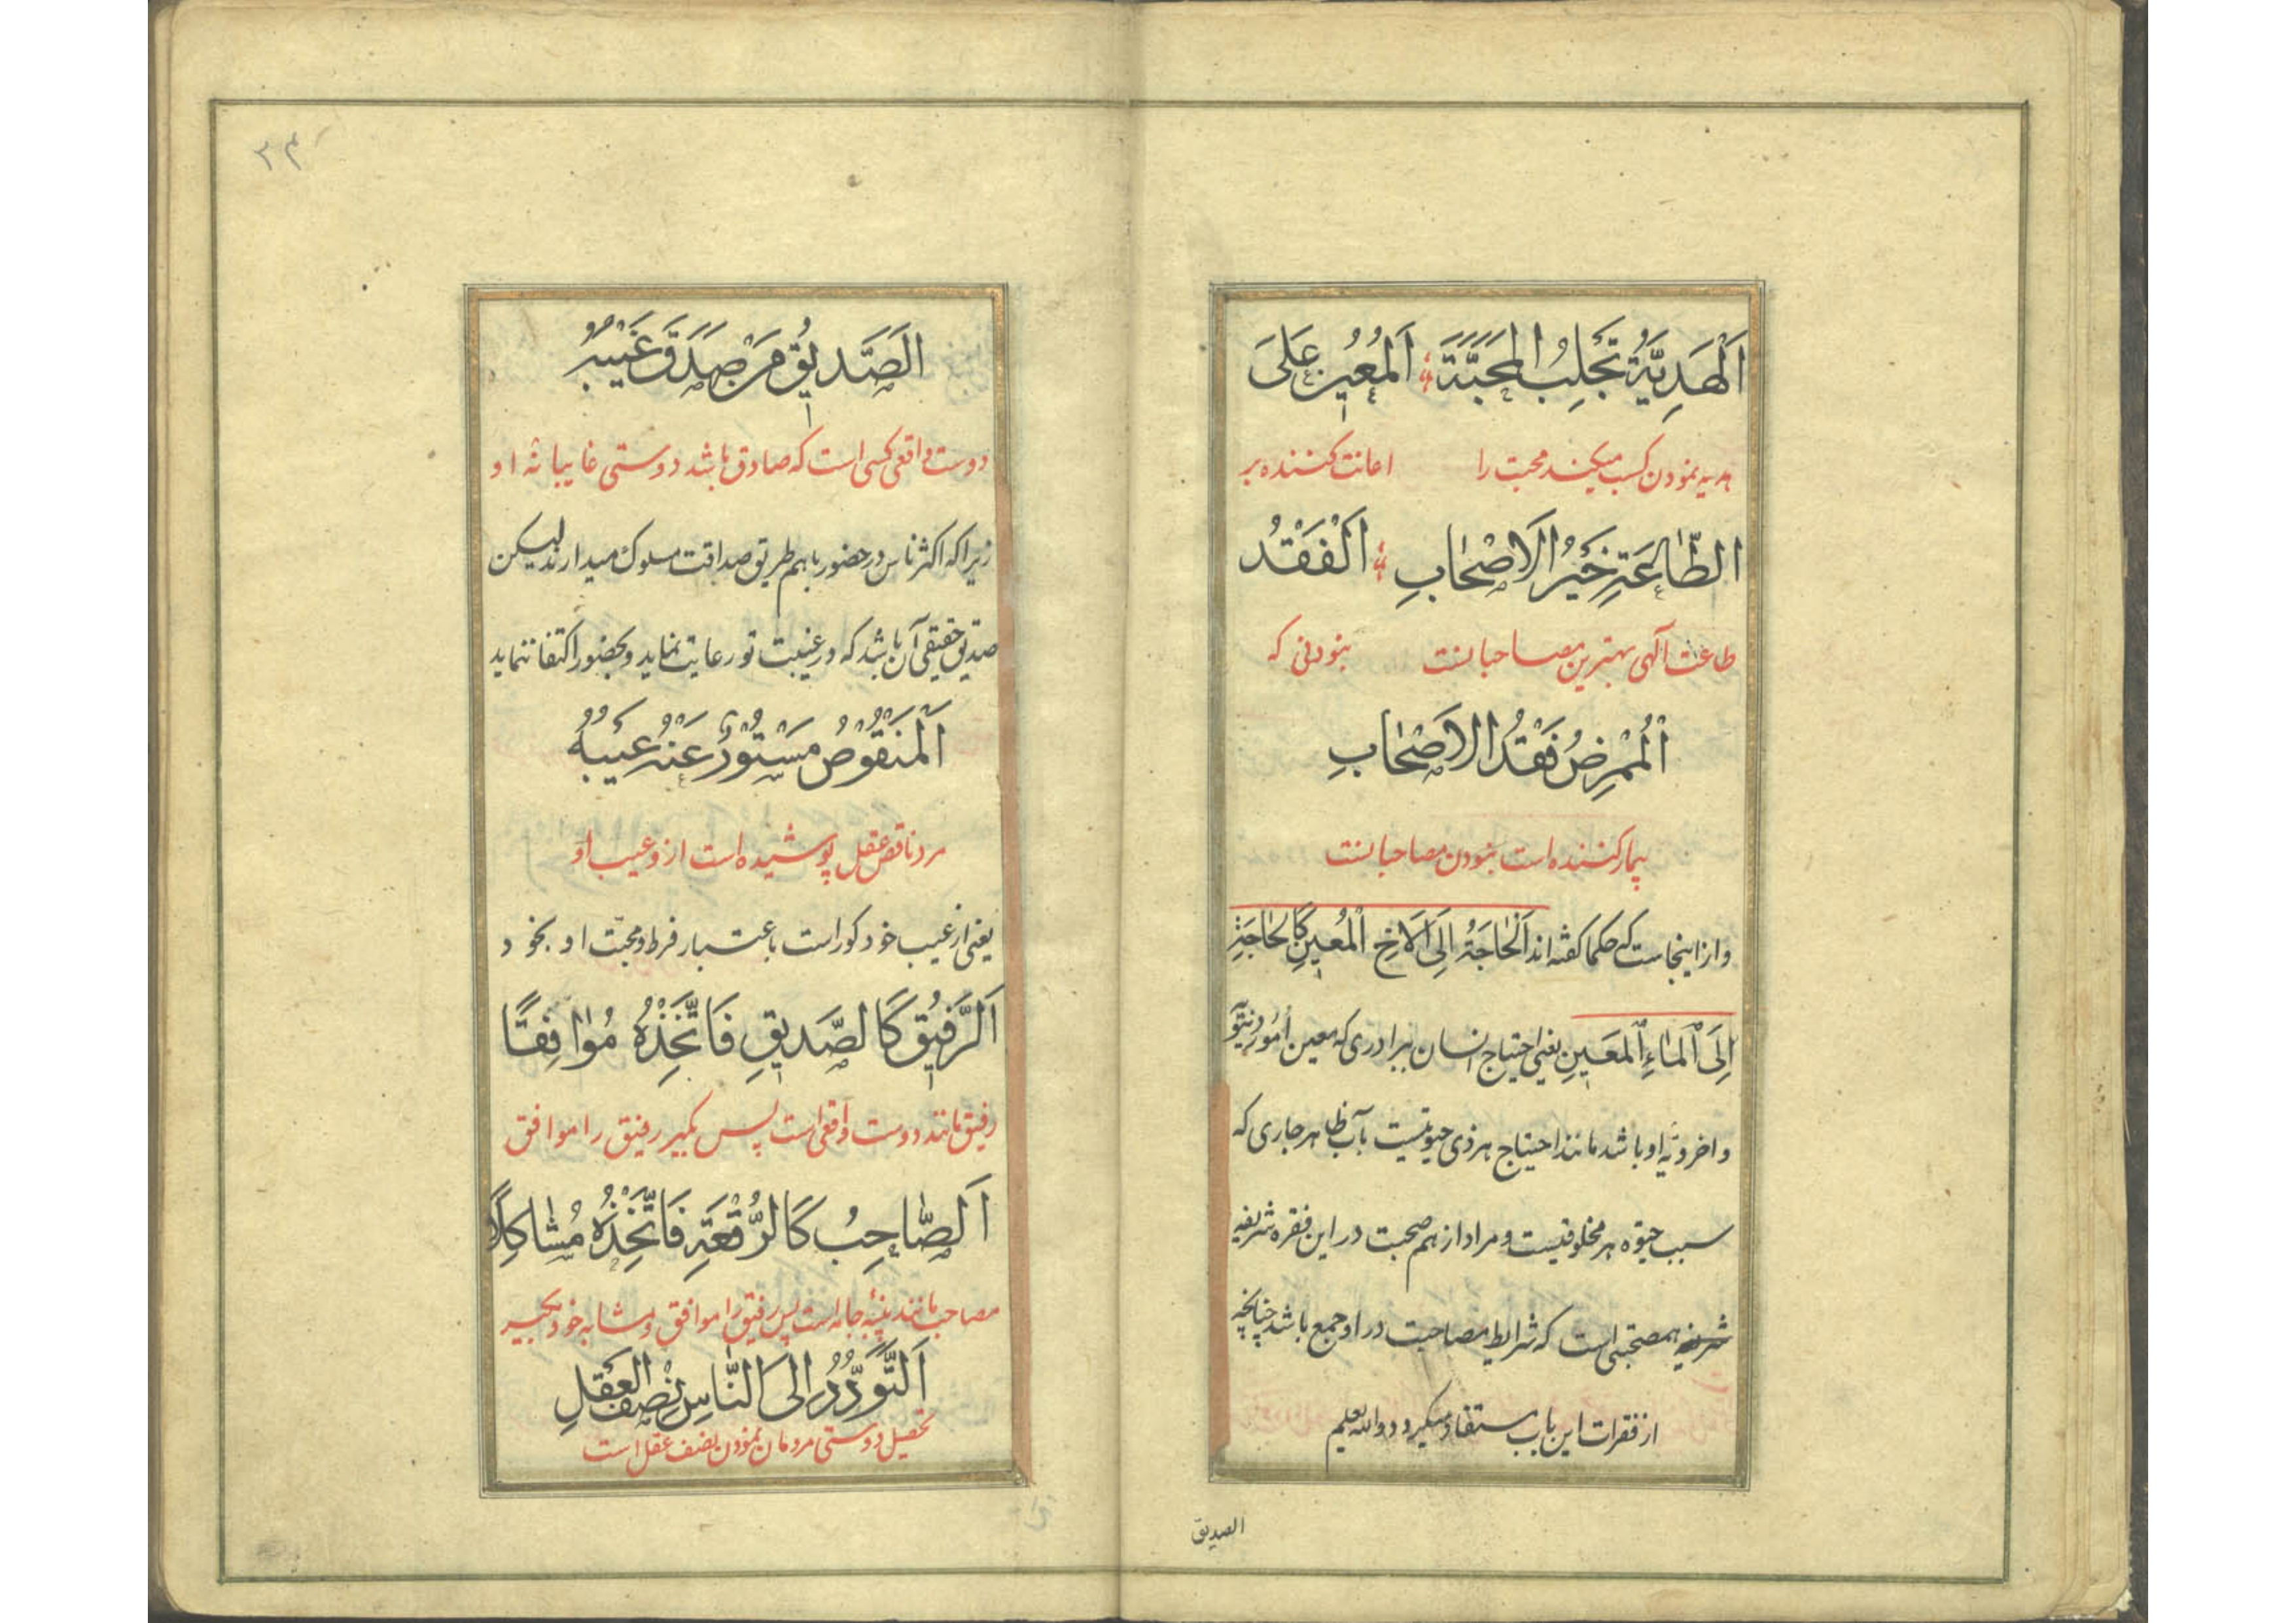 اَلْهَدِيَّةُ تَجْلِبُ الْمَحَبَّةَ اَلْمُعِينُ عَلَى
هدیه نمودن کسب میکند محبت را اعانت کننده بر
الطَّاعَةِ خَيْرُ الْاَصْحَابِ اَلْفَقْدُ
طاعت آلهی بهترین مصاحبانست نبودنی که
اَلْمُمْرِضُ فَقْدُ الْاَصْحَابِ
بیمار کننده است نبودن مصاحبانست
و از اینجاست که حکما گفته اند اَلْحَاجَةُ اِلَى الْاَخِ الْمُعِينِ كَالْحَاجَةِ
اِلَى الْمَاءِ الْمَعِينِ یعنی احتیاج انسان ببرادری که معین امور دنیویّه
و اخرویّه او باشد مانند احتیاج هر ذی حیوتیست بآب ظاهر جاری که
سبب حیوه هر مخلوقیست و مراد از هم صحبت در این فقره شریفه
همصحبتی است که شرایط مصاحبت در او جمع باشد چنانچه
از فقرات این باب مستفاد میگردد والله یعلم
الصدیق
٢٣
الصَّدِيقُ مَنْ صَدَقَ غَيْبُهُ
دوست واقعی کسی است که صادق باشد دوستی غایبانه او
زیرا که اکثر ناس در حضور باهم طریق صداقت مسلوک میدارند لیکن
صدیق حقیقی آن باشد که در غیبت تو رعایت نماید و بحضور اکتفا ننماید
اَلْمَنْقُوصُ مَسْتُورٌ عَنْهُ عَيْبُهُ
مرد ناقص عقل پوشیده است ازو عیب او
یعنی از عیب خود کور است باعتبار فرط محبت او بخود
اَلرَّفِيقُ كَالصَّدِيقِ فَاتَّخِذْهُ مُوَافِقًا
رفیق مانند دوست واقعی است پس بگیر رفیق را موافق
اَلصَّاحِبُ كَالرُّقْعَةِ فَاتَّخِذْهُ مُشَاكِلًا
مصاحب مانند پینهٔ جامه است پس رفیق را موافق و مشابه خود بگیر
اَلتَّوَدُّدُ اِلَى النَّاسِ نِصْفُ الْعَقْلِ
تحصیل دوستی مردمان نمودن نصف عقل است